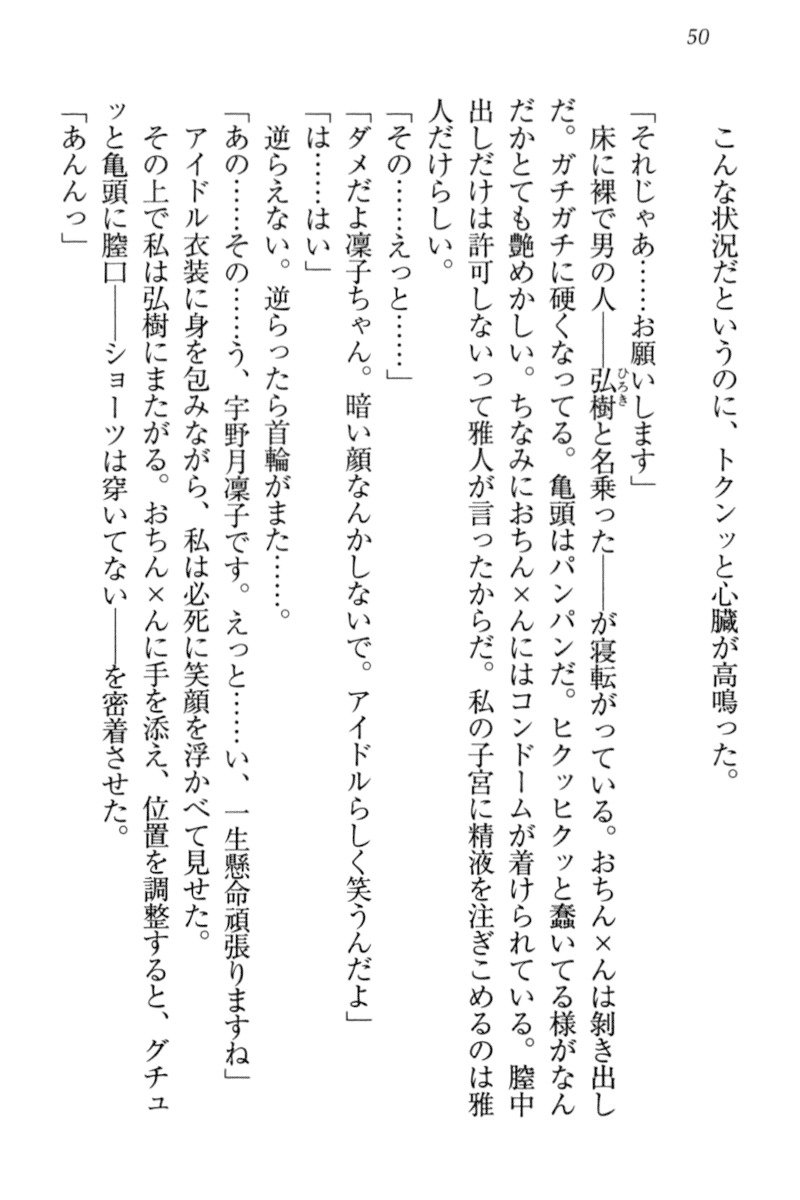 50
こんな状況だというのに、トクンッと心臓が高鳴った。
「それじゃあ……お願いします」
床に裸で男の人――弘樹と名乗った――が寝転がっている。おちん×んは剝き出し
ひろき
だ。ガチガチに硬くなってる。亀頭はパンパンだ。ヒクッヒクッと蠢いてる様がなん
だかとても艶めかしい。ちなみにおちん×んにはコンドームが着けられている。膣中
出しだけは許可しないって雅人が言ったからだ。私の子宮に精液を注ぎこめるのは雅
人だけらしい。
「その……えっと……」
「ダメだよ凜子ちゃん。暗い顔なんかしないで。アイドルらしく笑うんだよ」
「は……はい」
逆らえない。逆らったら首輪がまた……。
「あの……その……う、宇野月凜子です。えっと……い、一生懸命頑張りますね」
アイドル衣装に身を包みながら、私は必死に笑顔を浮かべて見せた。
その上で私は弘樹にまたがる。おちん×んに手を添え、位置を調整すると、グチュ
ッと亀頭に膣口――ショーツは穿いてない――を密着させた。
「あんんっ」